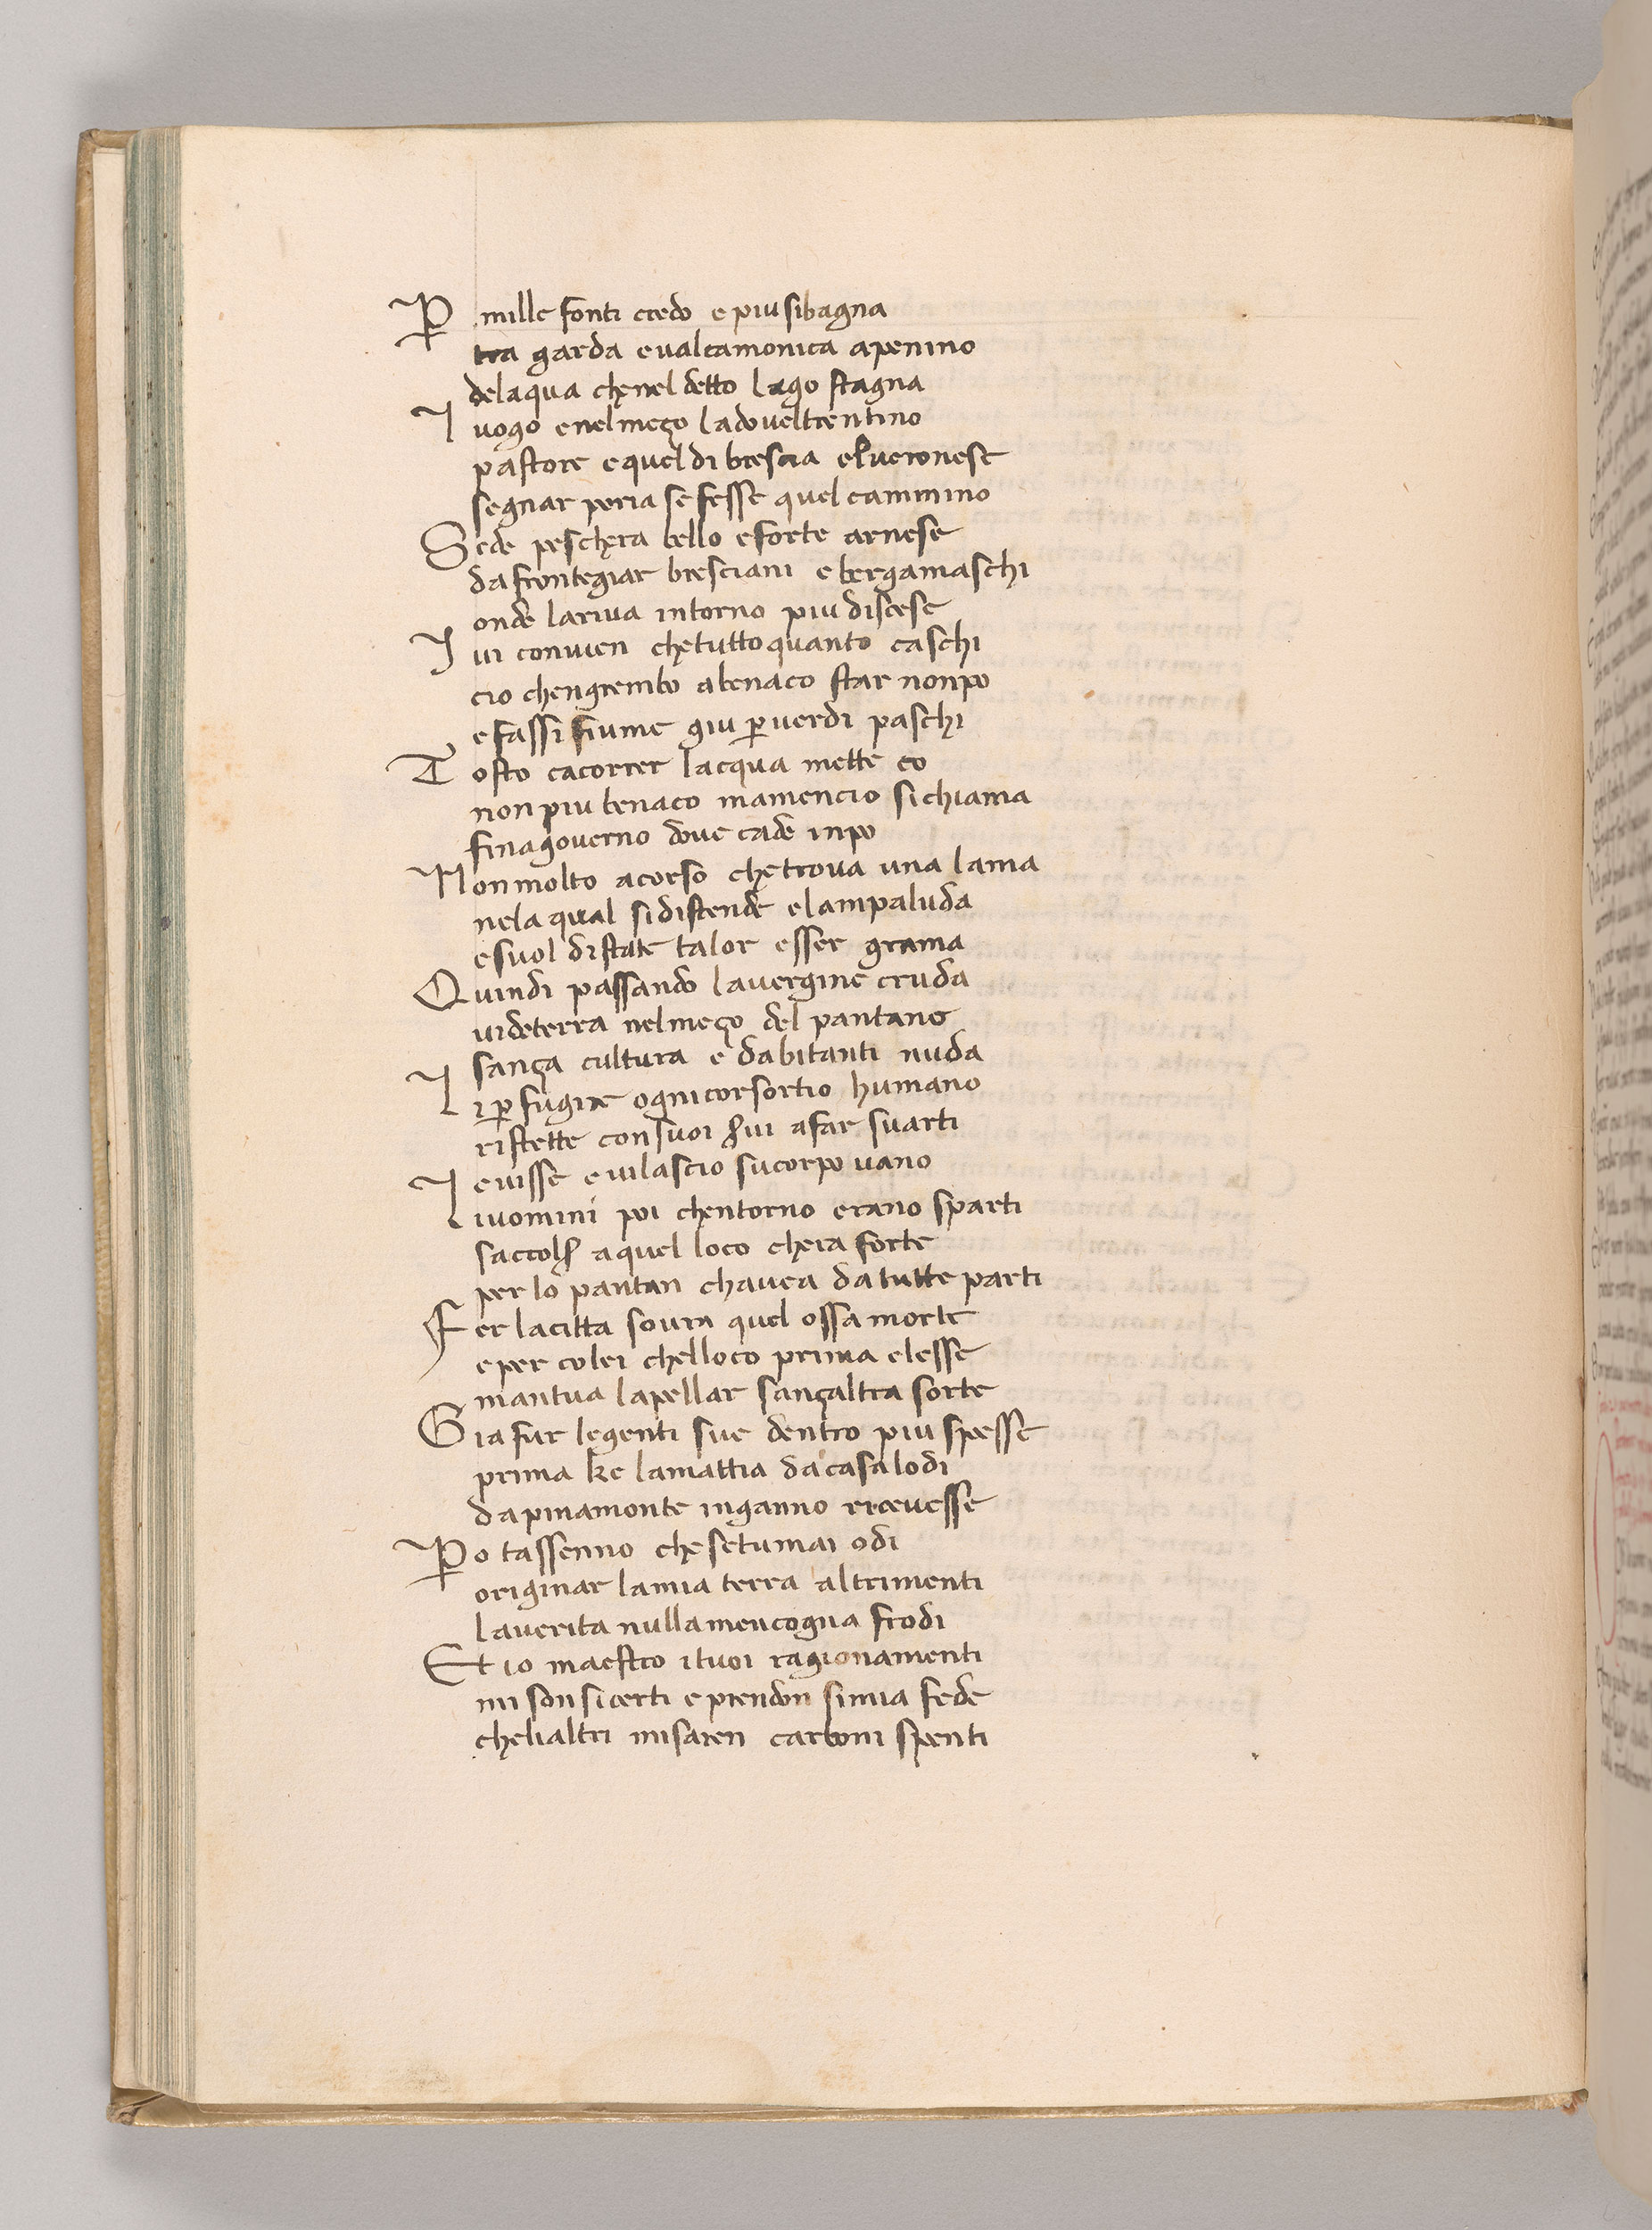 Ꝑ mille fonti credo e piu sibagna
tra garda eualcamonica apenino
delaqua chenel detto lago stagna
I uogo enelmeço ladoueltrentino
pastore equel di brescia elueronese
segnar poria se fesse quel cammino
Sede peschera bello eforte arnese
dafrontegiar bresciani ebergamaschi
onde lariua intorno piu discese
I ui conuien chetuttoquanto caschi
cio chengrembo abenaco star nonpo
efassi fiume giu ꝑuerdi paschi
T osto cacorrer lacqua mette co
nonpiu benaco mamencio sichiama
finagouerno doue cade inpo
Nonmolto acorso chetroua una lama
nela qual sidistende elampaluda
esuol distate talor esser grama
Quindi passando lauergine cruda
uideterra nelmeço del pantano
sança cultura e dabitanti nuda
L iꝑ fugire ognicorsortio humano
ristette consuoi ẜui afar suarti
I euisse euilascio sucorpo uano
L iuomini poi chentorno erano sparti
saccolẜ aquel loco chera forte
per lo pantan chauea datutte parti
Fer lacitta soura quel ossa morte
eper colei chelloco prima elesse
mantua lapellar sançaltra sorte
Gia fur legenti sue dentro piu spesse
prima ke lamattia dacasalodi
dapinamonte inganno riceuesse
Ꝑo tassenno chesetumai odi
originar lamia terra altrimenti
lauerita nullamencogna frodi
Et io maestro ituoi ragionamenti
mi son sicerti eprendon simia fede
chelialtri misaren carboni spenti